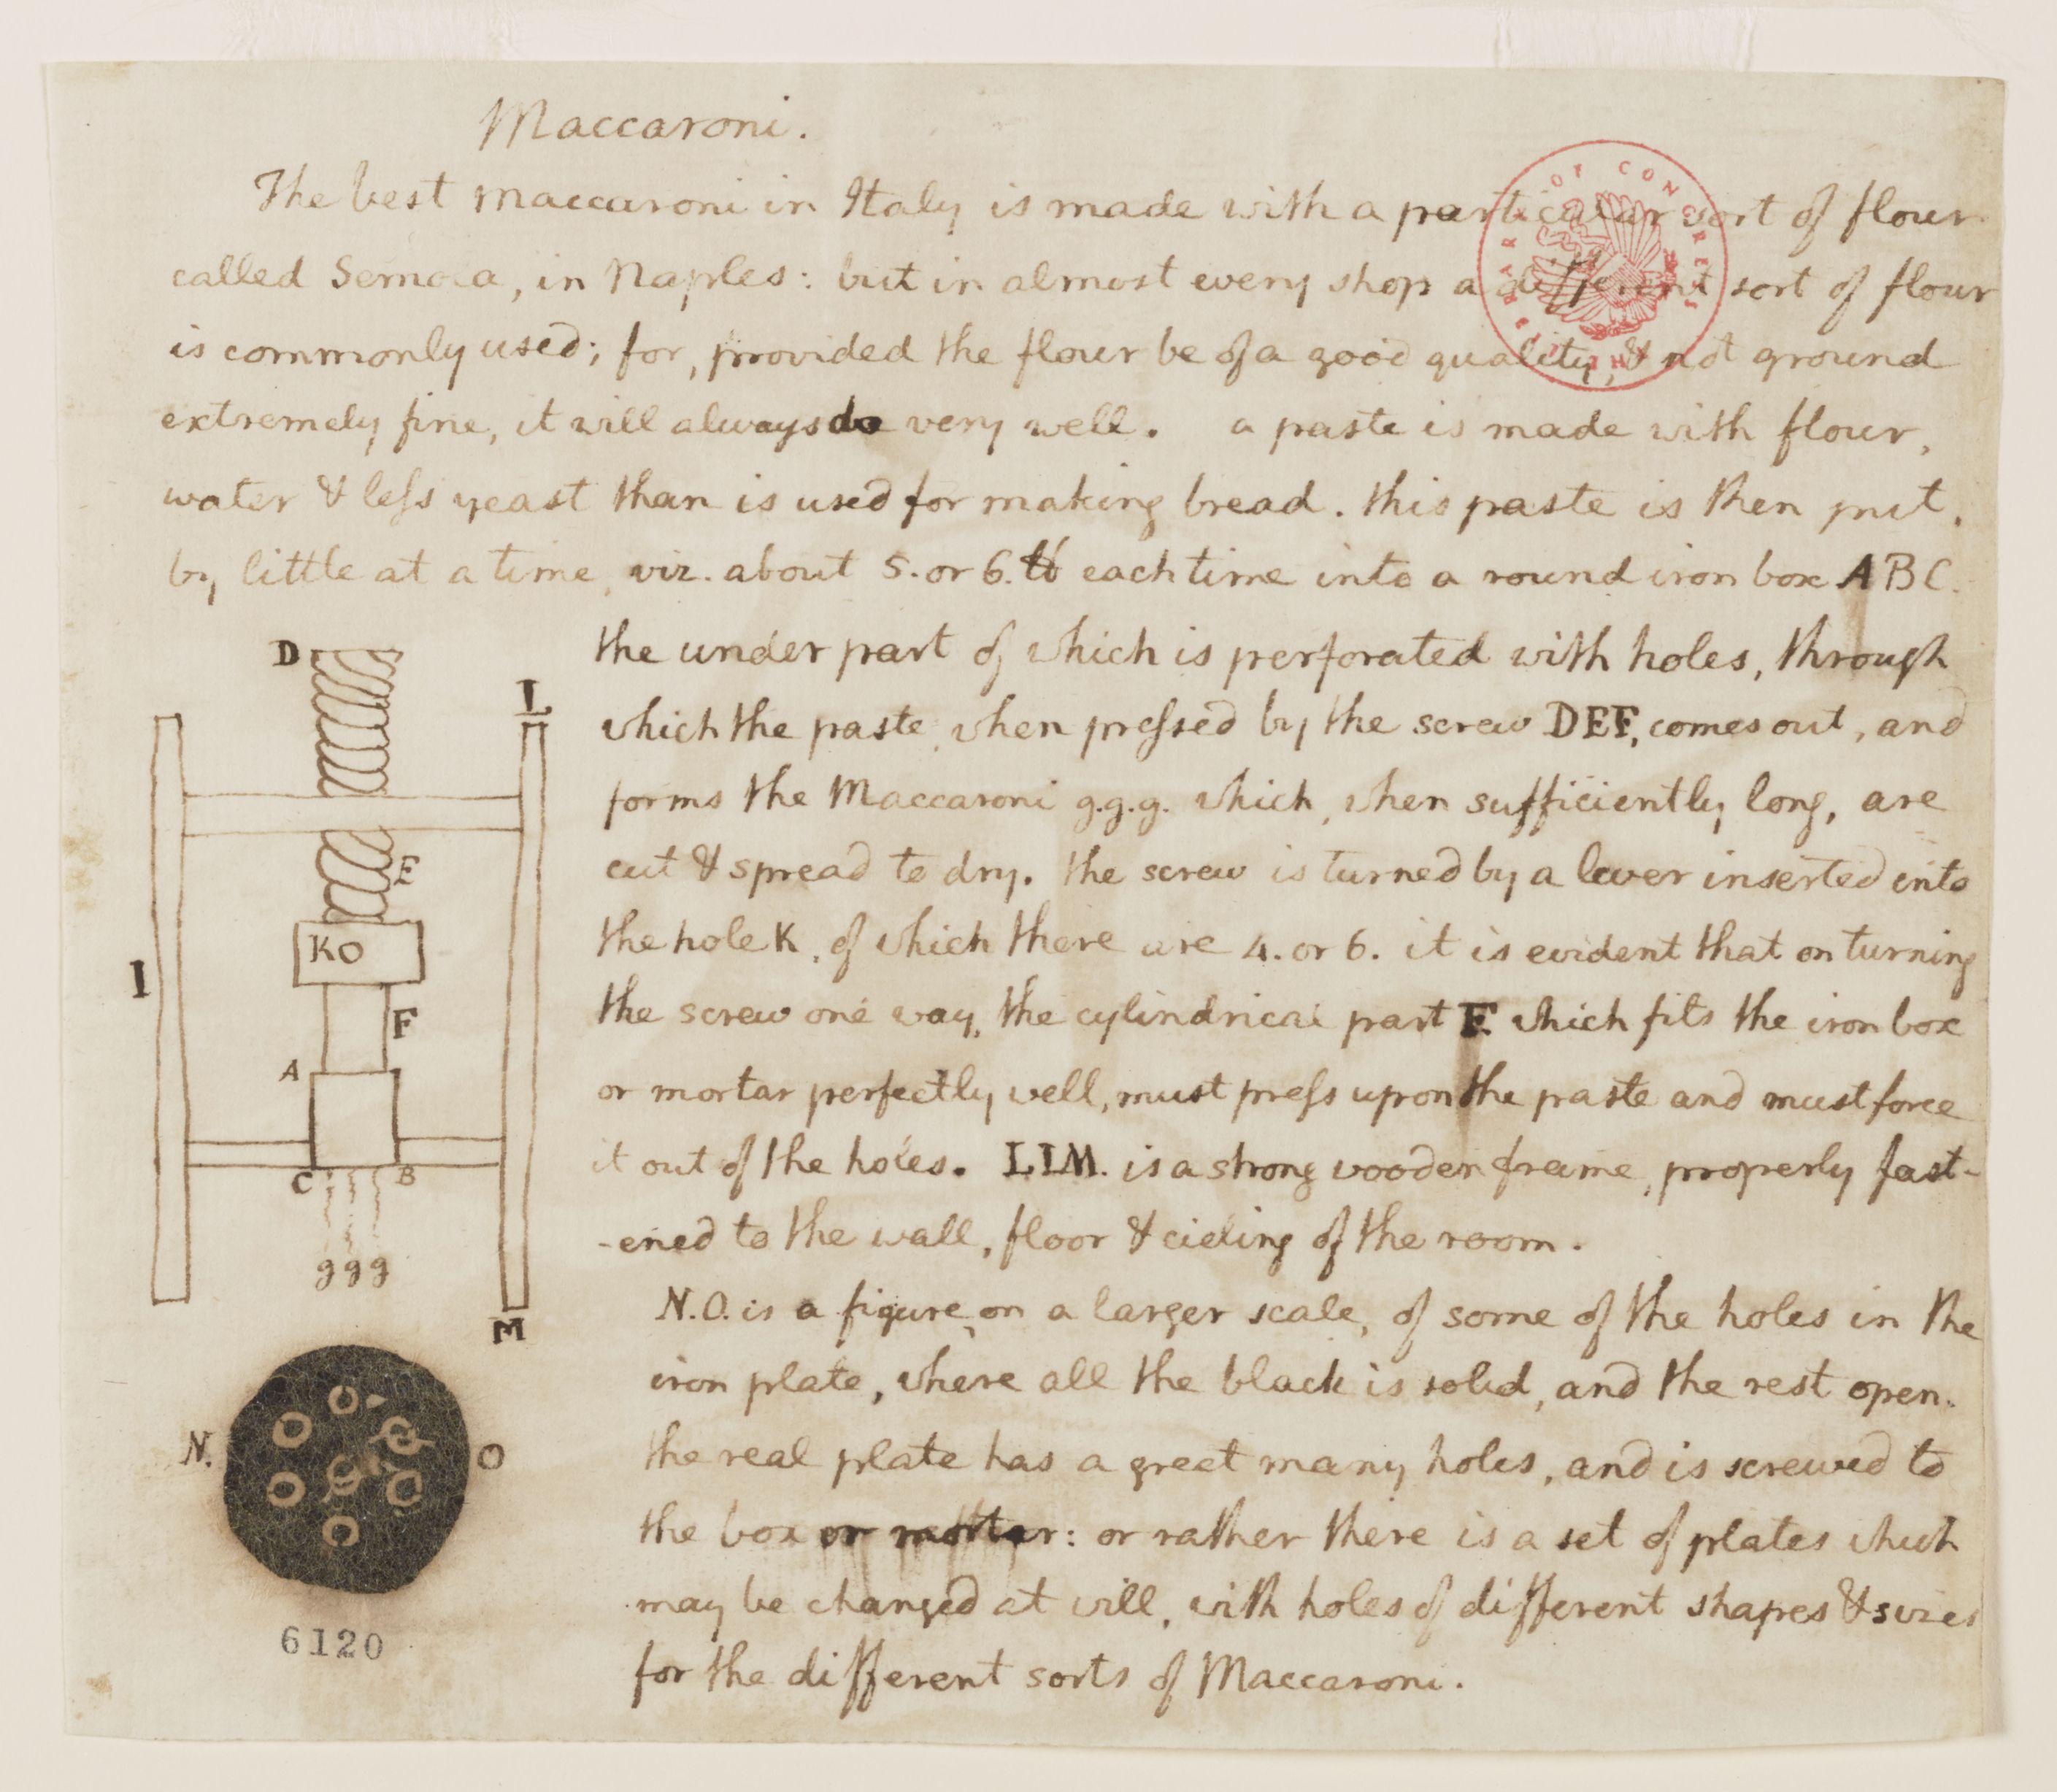 Maccaroni.
The best maccaroni in Italy is made with a particular sort of flour
called Semola, in Naples: but in almost every shop a different sort of flour
is commonly used; for, provided the flour be of a good quality, & not ground
extremely fine, it will always do very well. a paste is made with flour,
water & less yeast than is used for making bread. this paste is then put,
by little at a time, viz. about 5. or 6. ℔ each time into a round iron box ABC.
the under part of which is perforated with holes, through
which the paste, when pressed by the screw DEF, comes out, and
forms the Maccaroni g.g.g. which, when sufficiently long, are
cut & spread to dry. the screw is turned by a lever inserted into
the hole K, of which there are 4. or 6. it is evident that on turning
the screw one way, the cylindrical part F. which fits the iron box
or mortar perfectly well, must press upon the paste and must force
it out of the holes. LIM. is a strong wooden frame, properly fast-
-ened to the wall, floor & cieling of the room.
N.O. is a figure, on a larger scale, of some of the holes in the
iron plate, where all the black is solid, and the rest open.
the real plate has a great many holes, and is screwed to
the box or mortar: or rather there is a set of plates which
may be changed at will, with holes of different shapes & sizes
for the different sorts of Maccaroni.
D
L
E
K
I
F
A
C
B
g g g
M
N.
O
6120
LIBRARY OF CONGRESS